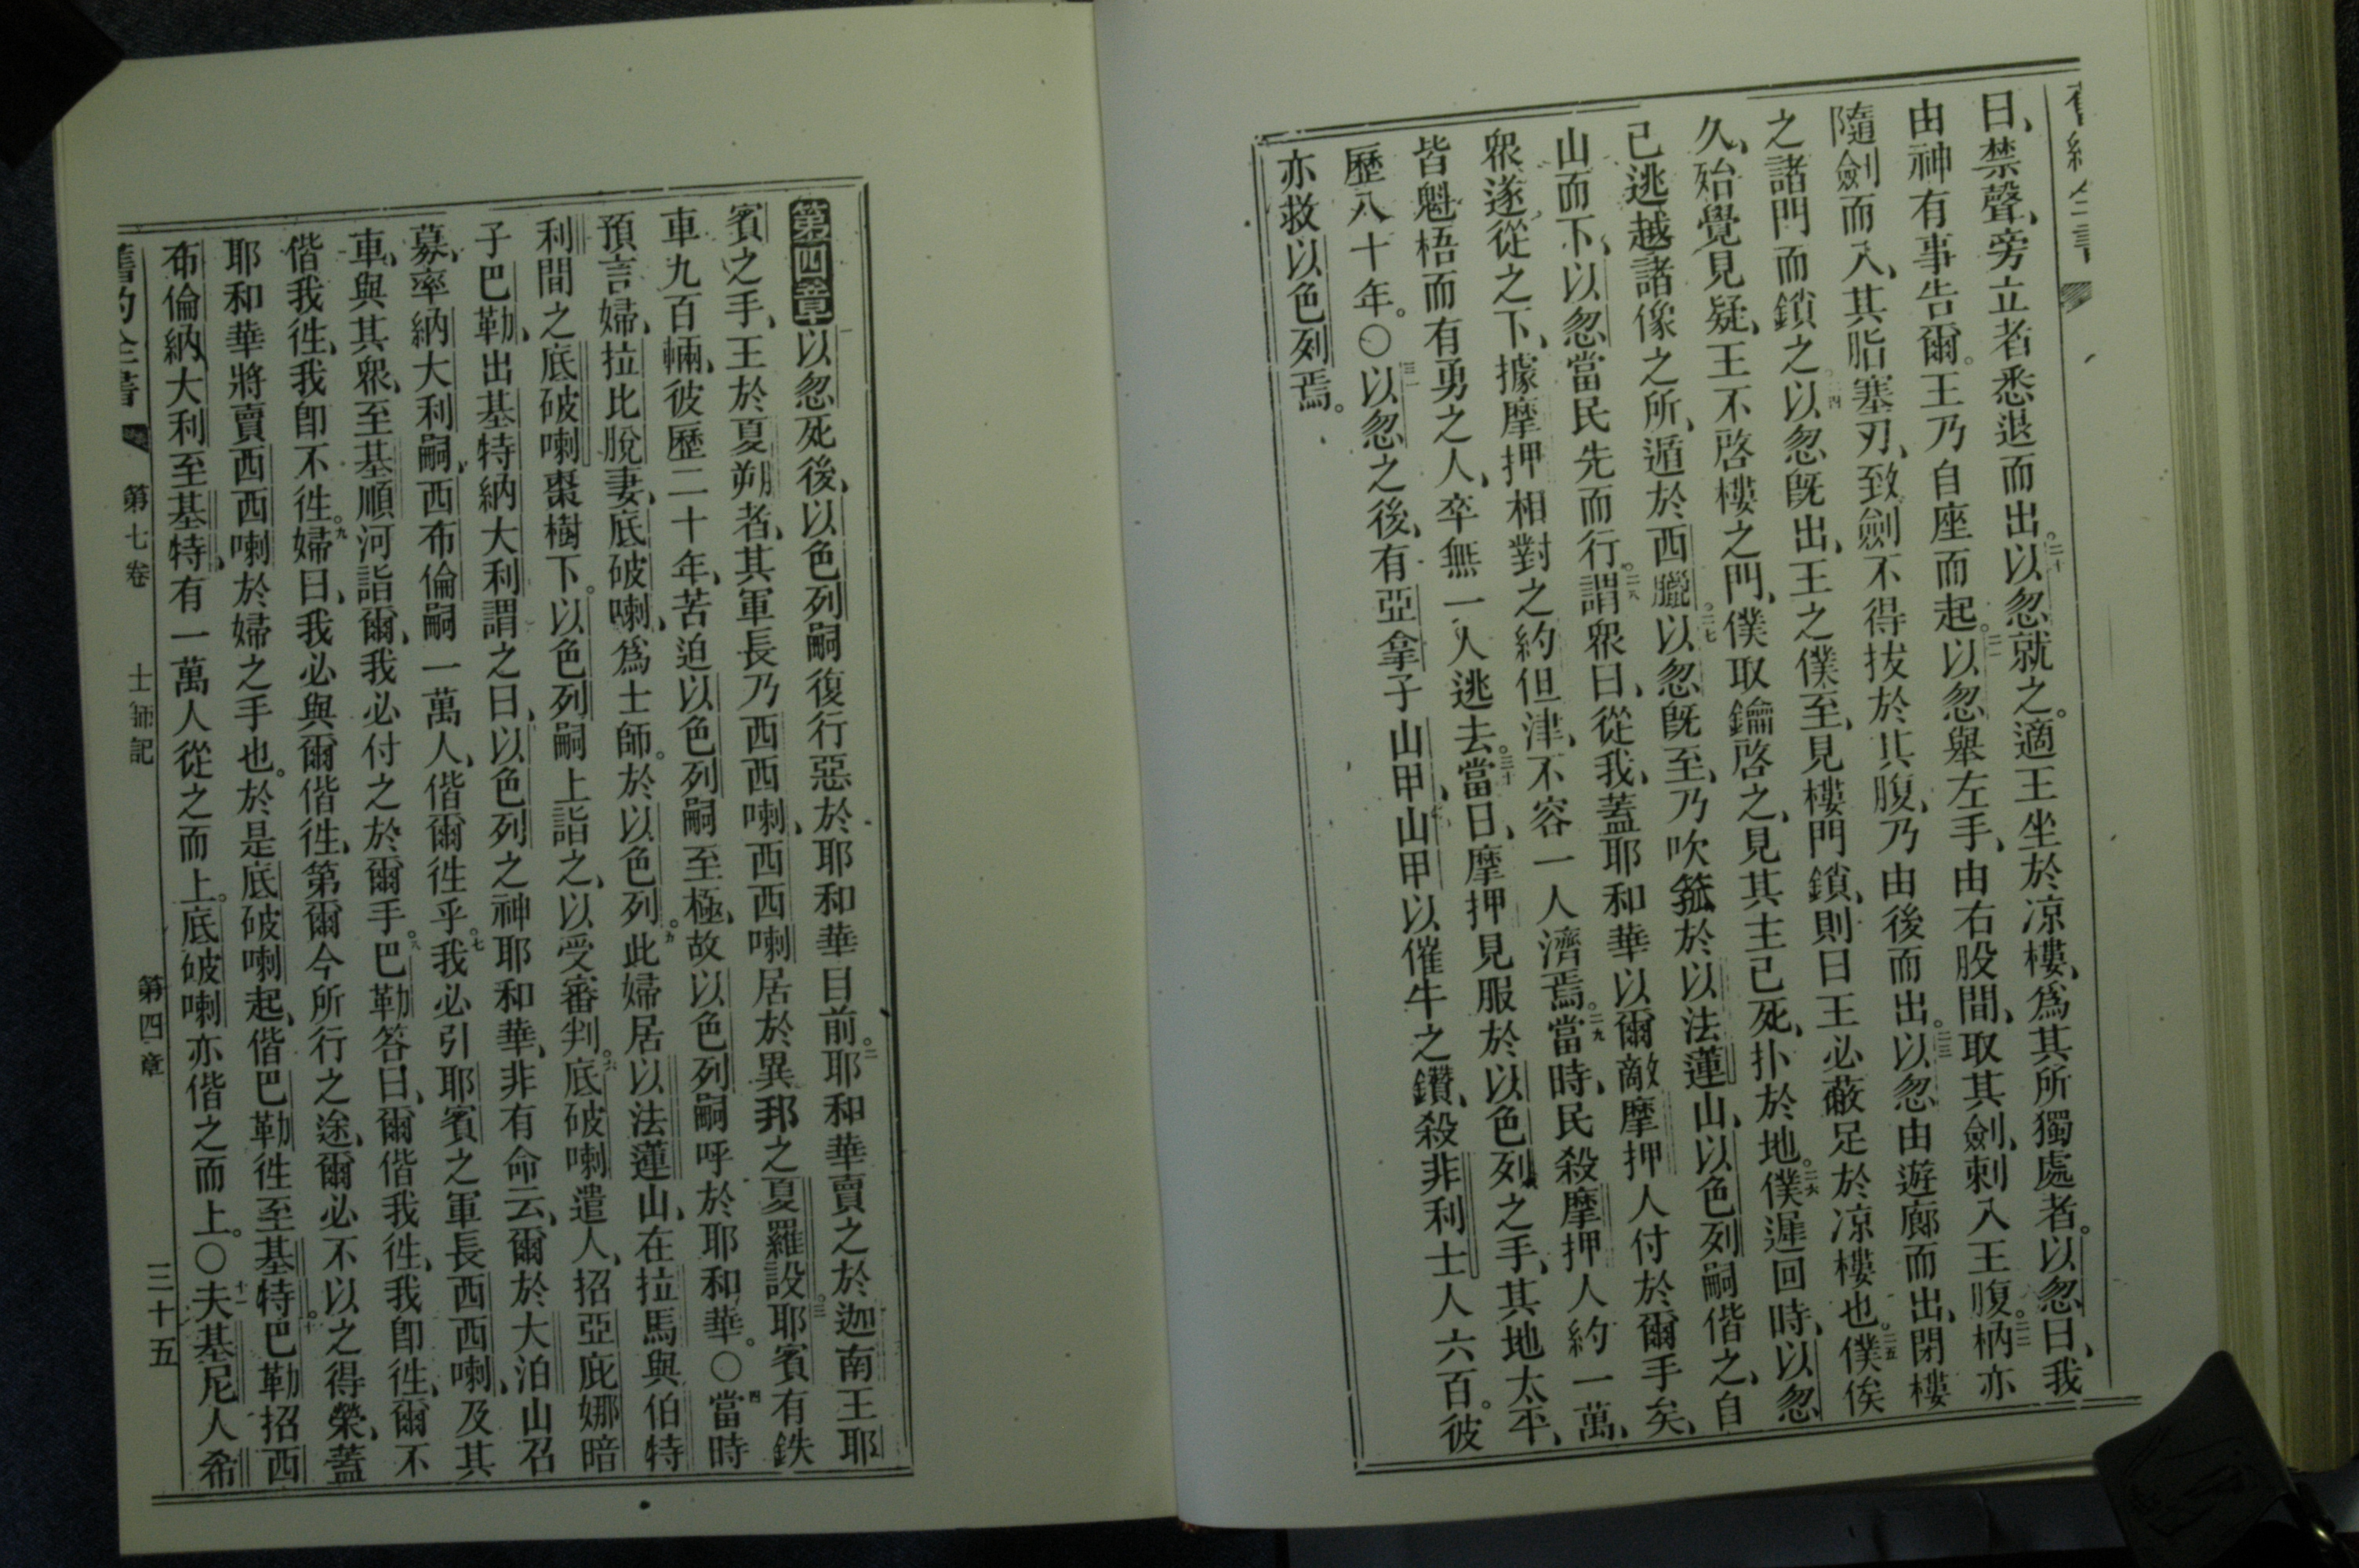 曰、禁聲、旁立者悉退而出。二十以忽就之。適王坐於凉樓、爲其所獨處者。以忽曰、我
由神有事告爾。王乃自座而起。二一以忽舉左手、由右股間、取其劍、刺入王腹。二二柄亦
隨劍而入、其脂塞刃、致劍不得拔於其腹、乃由後而出。二三以忽由遊廊而出、閉樓
之諸門而鎖之。二四以忽旣出、王之僕至、見樓門鎖、則曰王必蔽足於凉樓也。二五僕俟
久、始覺見疑、王不啓樓之門、僕取鑰啓之、見其主已死、扑於地。二六僕遲回時、以忽
已逃越諸像之所、遁於西臘。二七以忽旣至、乃吹箛於以法蓮山、以色列嗣偕之、自
山而下、以忽當民先而行。二八謂衆曰、從我、蓋耶和華以爾敵摩押人付於爾手矣、
衆遂從之下、據摩押相對之約但津、不容一人濟焉。二九當時、民殺摩押人約一萬、
皆魁梧而有勇之人、卒無一人逃去。三十當日、摩押見服於以色列之手、其地太平、
歷八十年。〇三一以忽之後、有亞拿子山甲、山甲以催牛之鑽、殺非利士人六百。彼
亦救以色列焉。
第四章以忽死後、以色列嗣復行惡於耶和華目前。二耶和華賣之於迦南王耶
賓之手、王於夏朔者、其軍長乃西西喇、西西喇居於異邦之夏羅設。三耶賓有鉄
車九百輛、彼歷二十年、苦迫以色列嗣至極、故以色列嗣呼於耶和華。〇四當時
預言婦、拉比脫妻、底破喇、爲士師。於以色列。五此婦居以法蓮山、在拉馬與伯特
利間之底破喇棗樹下。以色列嗣上詣之、以受審判。六底破喇遣人、招亞庇娜暗
子巴勒、出基特納大利謂之曰、以色列之神耶和華、非有命云、爾於大泊山召
募、率納大利嗣、西布倫嗣一萬人、偕爾徃乎。七我必引耶賓之軍長西西喇、及其
車、與其衆、至基順河詣爾、我必付之於爾手。八巴勒答曰、爾偕我徃、我卽徃、爾不
偕我徃、我卽不徃。九婦曰、我必與爾偕徃、第爾今所行之途、爾必不以之得榮、蓋
耶和華將賣西西喇於婦之手也。於是底破喇起、偕巴勒徃至基特。十巴勒招西
布倫納大利至基特、有一萬人從之而上。底破喇亦偕之而上。〇十一夫基尼人希
舊約全書 第七卷 士師記 第四章 三十五